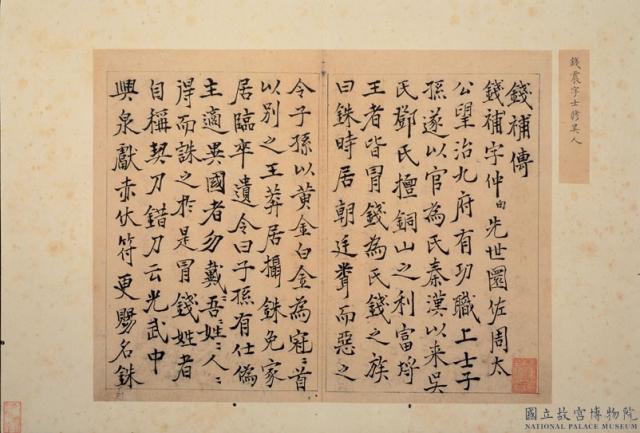 錢震字士修吳人
錢補傳
錢補字仲由先世圜佐周太
公望治九府有功職上士子
孫遂以官為氏秦漢以来吳
氏鄧氏擅銅山之利富埒
王者皆冐錢為氏錢之族
曰銖時居朝廷鶩而惡之
令子孫以黃金白金為冠〻首
以別之王莽居攝銖免家
居臨卒遺令曰子孫有仕僞
主適異國者勿戴吾姓〻人〻
得而誅之於是冐錢姓者
自稱契刀錯刀云光武中
興泉獻赤伏符更賜名銖
國立故宮博物院
NATIONAL PALACE MUSEUM